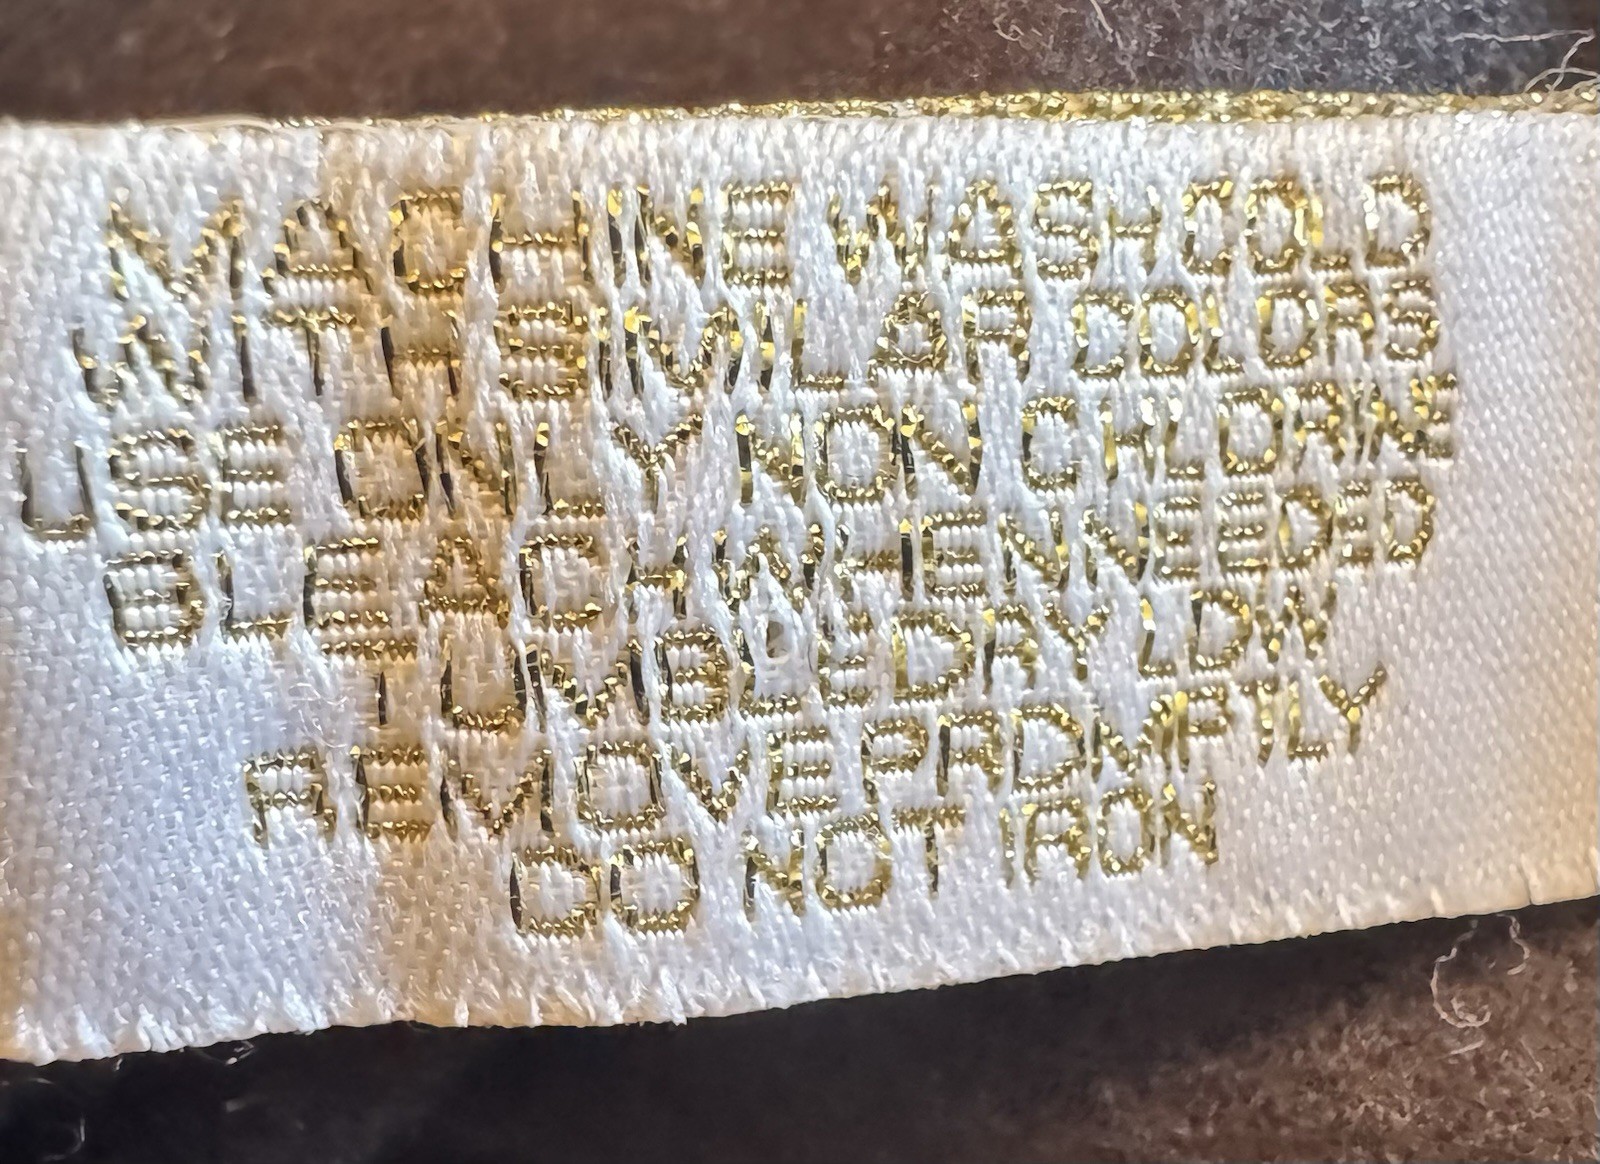 MACHINE WASH COLD
WITH SIMILAR COLORS
USE ONLY NON CHLORINE
BLEACH WHEN NEEDED
TUMBLE DRY LOW
REMOVE PROMPTLY
DO NOT IRON